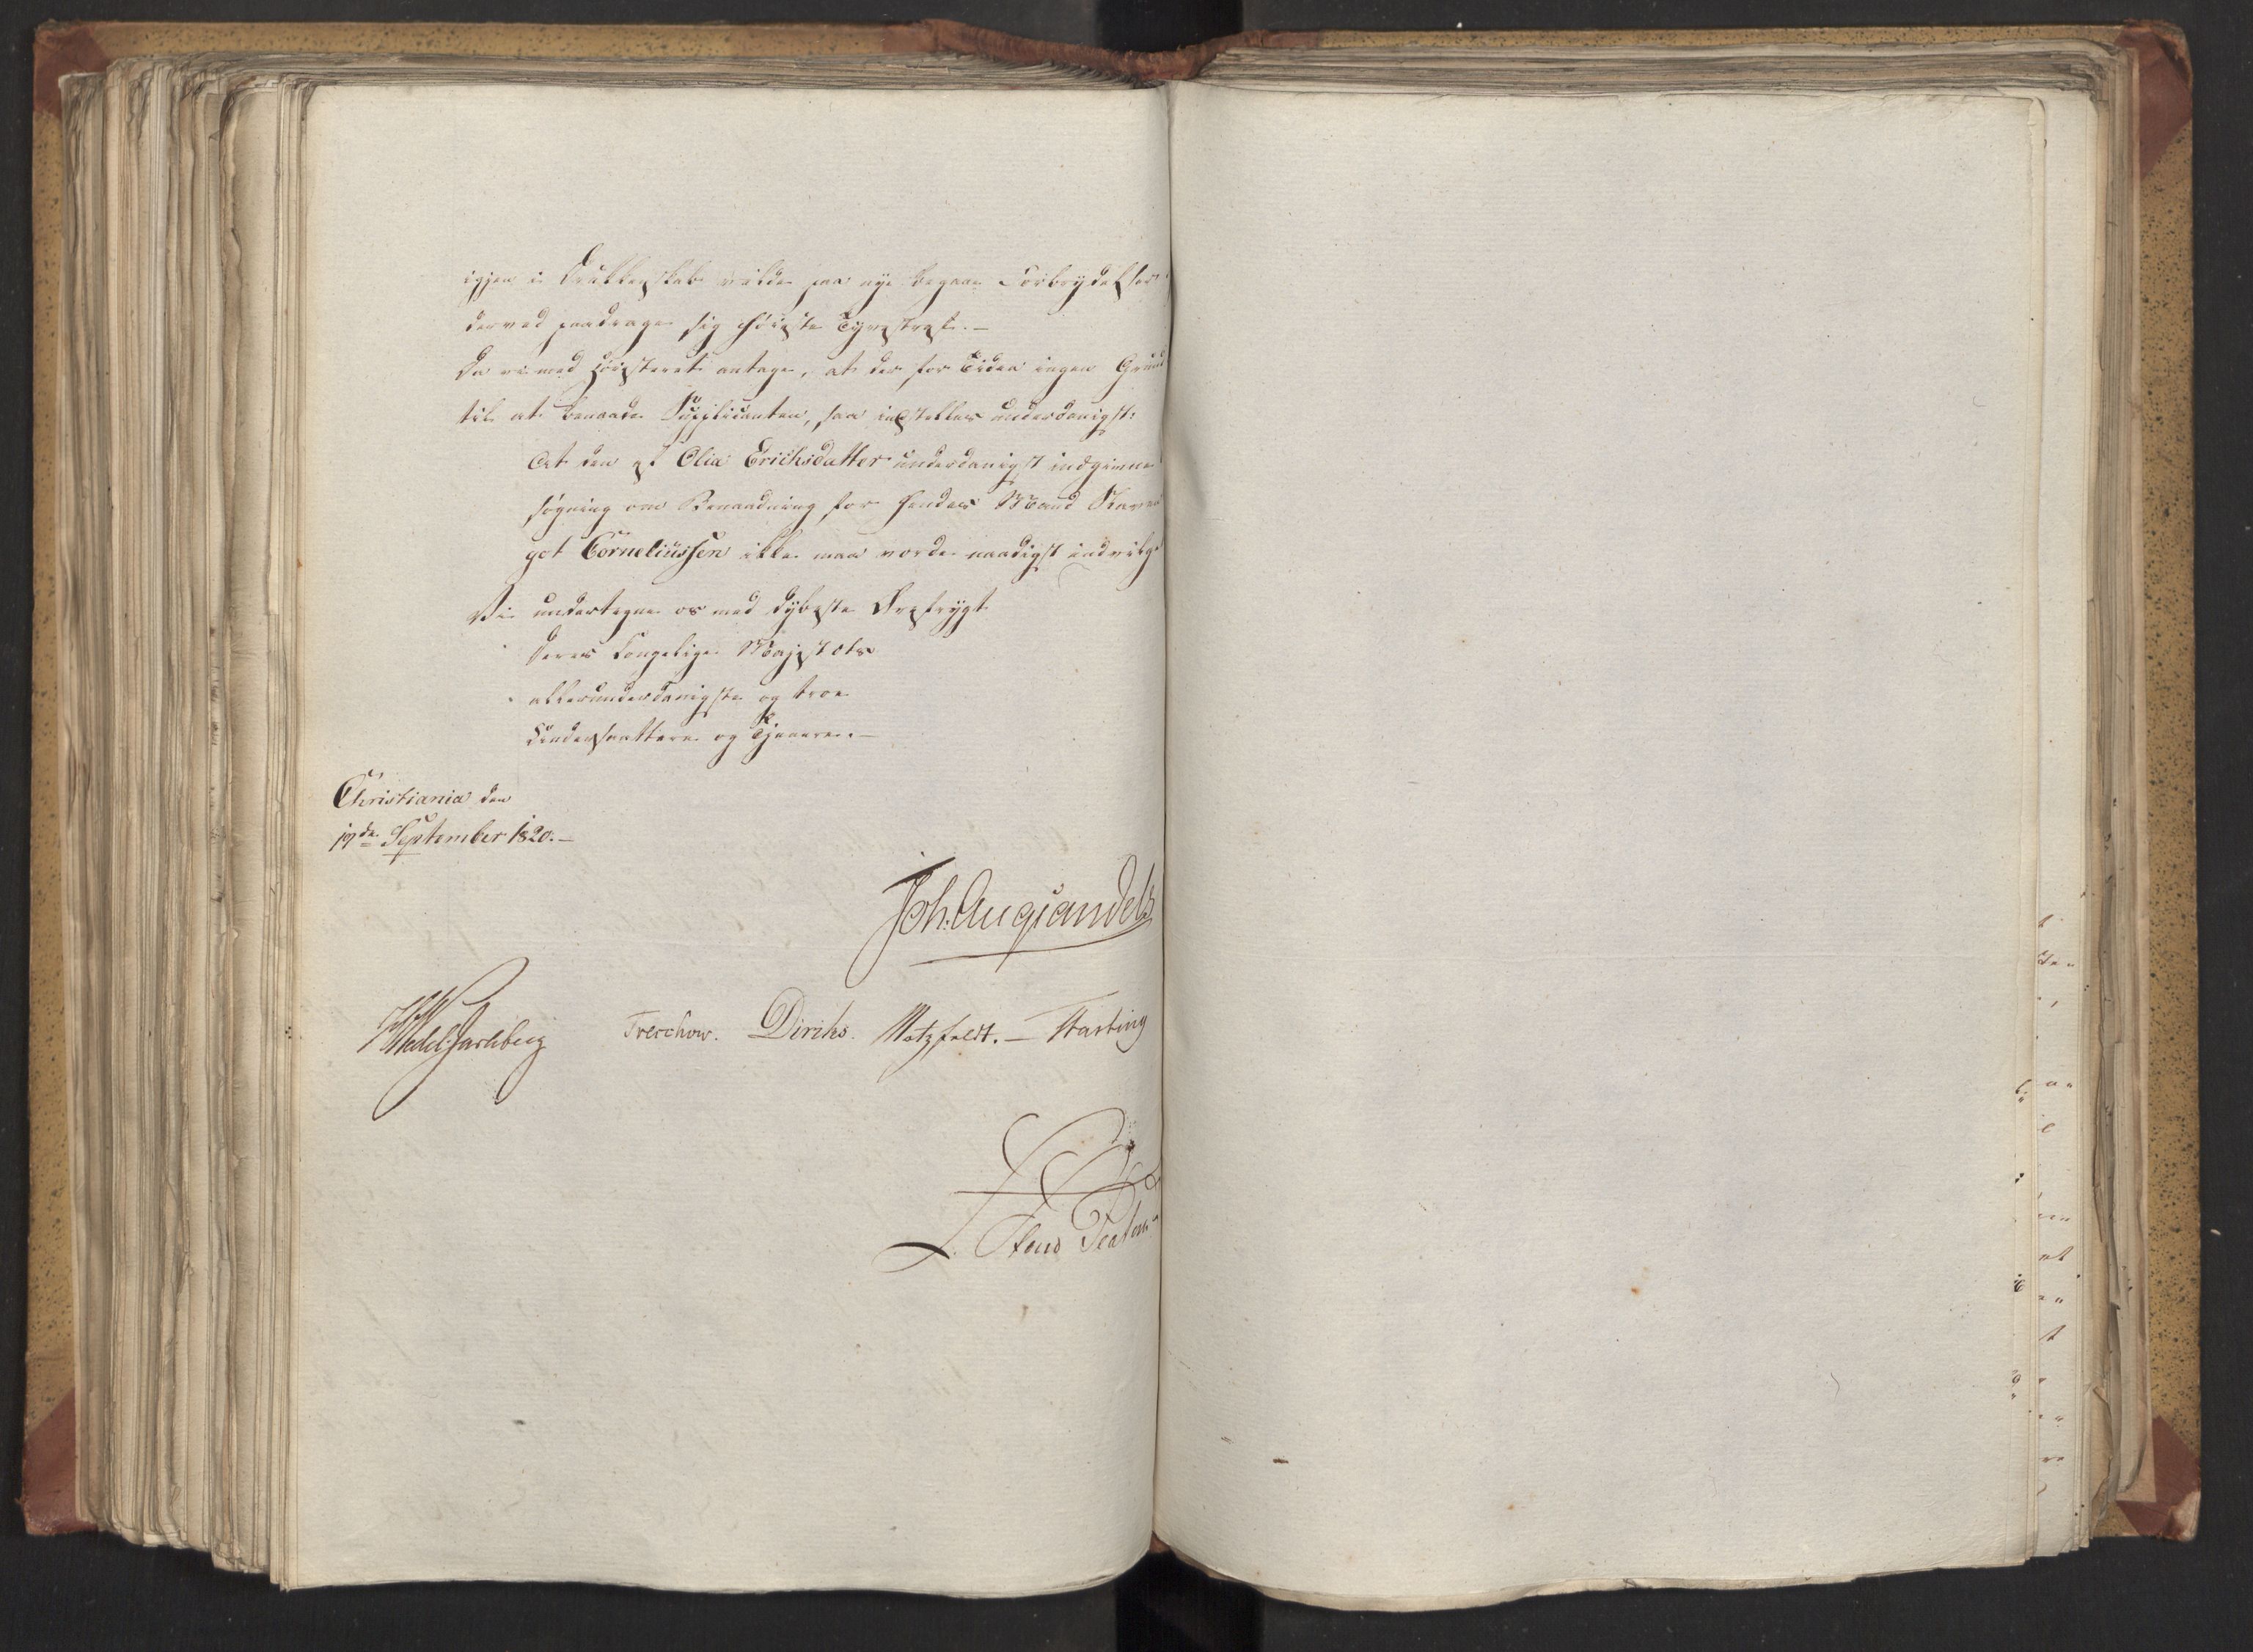 igjen i Drukkenskab vilde paa nye begaae Forbrydelser
derved paadrage sig høieste Tyvsstraf. —
Da vi med Høisteret antage, at der for Tiden ingen Grund
til at benaade Supplicanten, saa indstilles underdanigst:
At den af Olia Erichsdatter underdanigst indgivne
søgning om Benaadning for hendes Mand
got Corneliussen ikke maa vorde naadigst indvilget
Vi undertegne os med dybeste Ærefrygt
Deres Kongelige Majestæts
allerunderdanigste og troe
Undersaattere og Tjenere. —
Christiania den
17de September 1820. —
Joh. Aug Sandels
HWedel Jarlsberg Treschow. Diriks. Motzfeldt. — Fasting